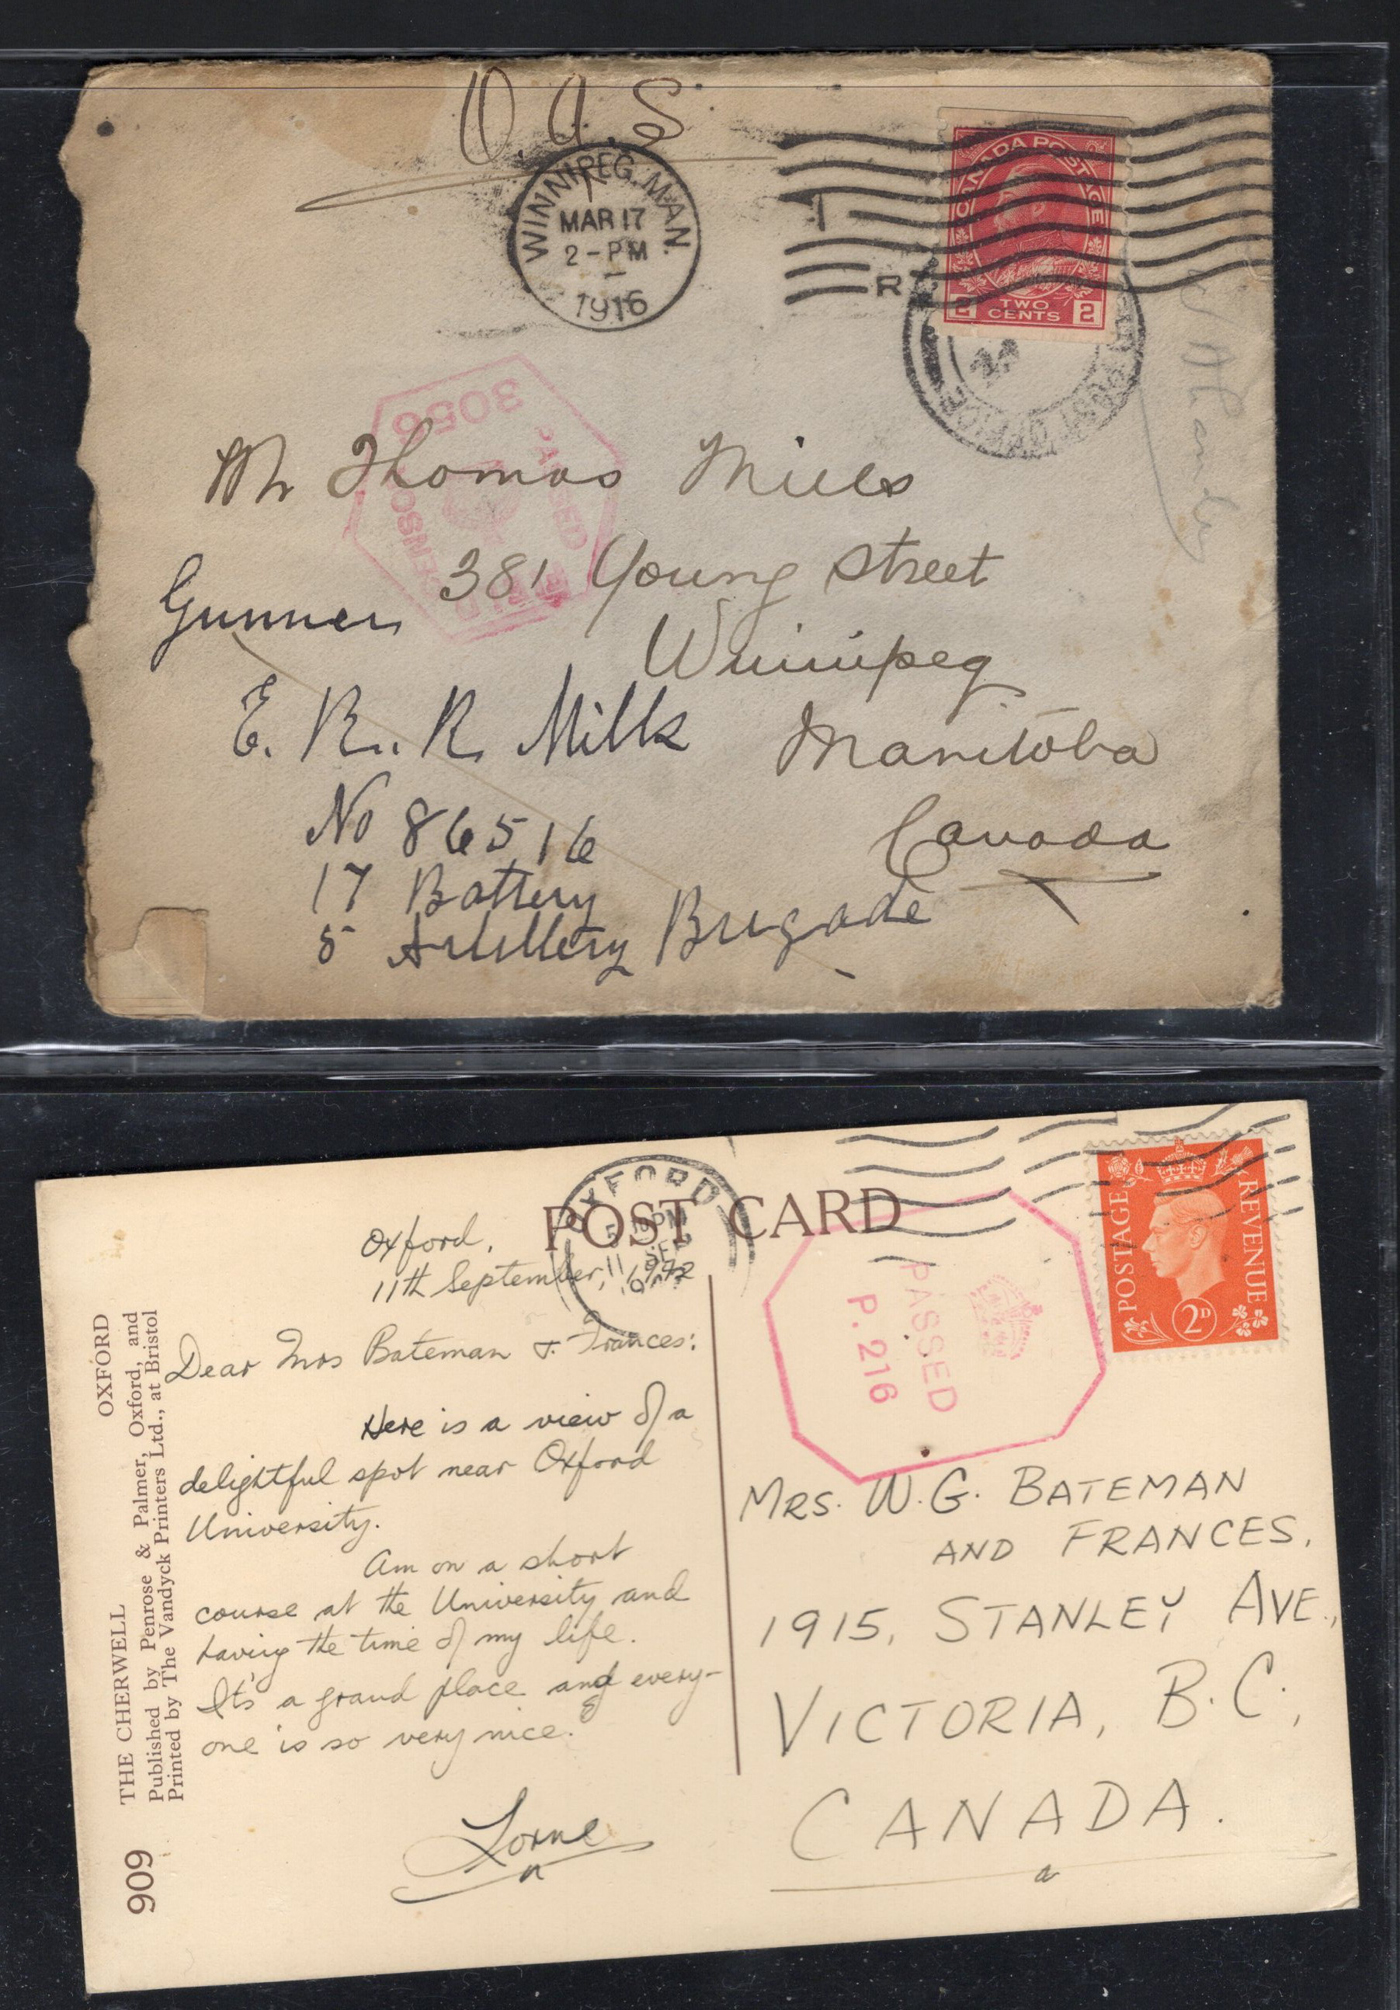 O.A.S.
WINNIPEG, MAN.
MAR 17
2 - PM
1916
CANADA POSTAGE
2 TWO CENTS 2
R
POST OFFICE
3056
PASSED
CENSOR
Mr Thomas Mills
381 Young Street
Winnipeg
Manitoba
Canada
Gunner
E. R. R. Mills
No 86516
17 Battery
5 Artillery Brigade
POST CARD
OXFORD
PM
11 SEP
POSTAGE REVENUE
2D
PASSED
P. 216
Oxford,
11th September, 1942
Dear Mrs Bateman & Frances:
Here is a view of a
delightful spot near Oxford
University.
Am on a short
course at the University and
having the time of my life.
It's a grand place and every-
one is so very nice.
Lorne
MRS. W. G. BATEMAN
AND FRANCES,
1915, STANLEY AVE.,
VICTORIA, B.C.,
CANADA.
THE CHERWELL OXFORD
Published by Penrose & Palmer, Oxford, and
Printed by The Vandyck Printers Ltd., at Bristol
909